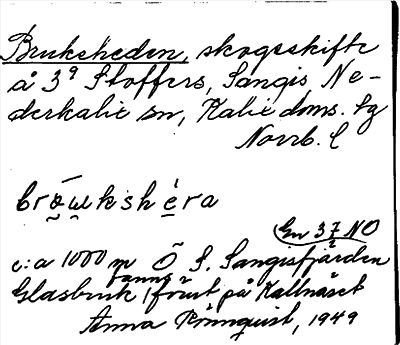 Brukeheden, skogsskifte
å 3⁹ Stoffers, Sangis, Ne-
derkalix sn, Kalix doms. hg
Norrb. l
brōwkshèra
En 37 NO
c:a 1000 m Ö S. Sangisfjärden
Glasbruk fanns förut på Kallnäset
Anna Rönnquist, 1949